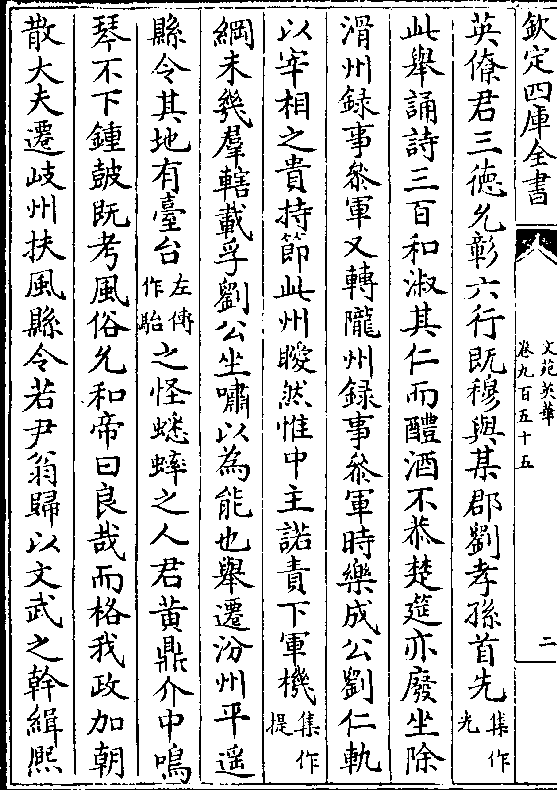 欽定四庫全書
文苑英華
卷九百五十五
二
英僚君三徳允彰六行既穆與某郡劉孝孫首先集作光
此舉誦詩三百和淑其仁而醴酒不恭楚筵亦廢坐除
滑州録事叅軍又轉隴州録事叅軍時樂成公劉仁軌
以宰相之貴持節此州曖然惟中主諾責下軍機集作提
綱未幾羣轄載孚劉公坐嘯以為能也舉遷汾州平遥
縣令其地有臺台左傳作駘之怪蟋蟀之人君黄鼎介中鳴
琴不下鍾鼓既考風俗允和帝曰良哉而格我政加朝
散大夫遷岐州扶風縣令若尹翁歸以文武之幹緝熈